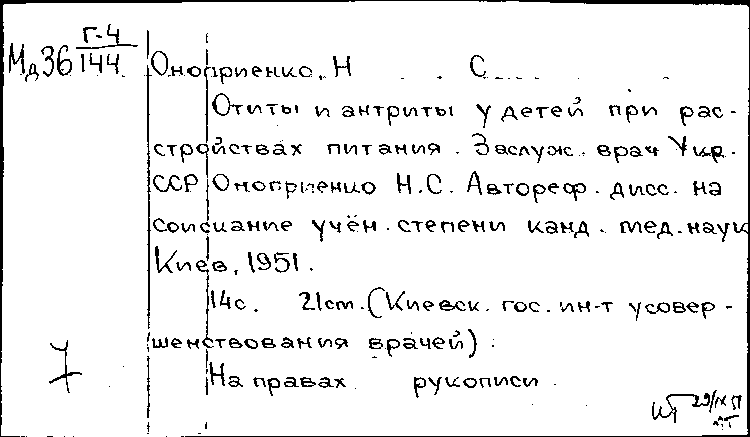 Г-4
Мд36 144
Оноприенко, Н С.
Отиты и антриты у детей при рас-
стройствах питания. Заслуж. врач Укр.
ССР Оноприенко Н.С. Автореф. дисс. на
соискание учён. степени канд. мед. наук
Киев, 1951.
14с. 21см. (Киевск. гос. ин-т усовер-
шенствования врачей).
На правах рукописи
7
29/IX 51